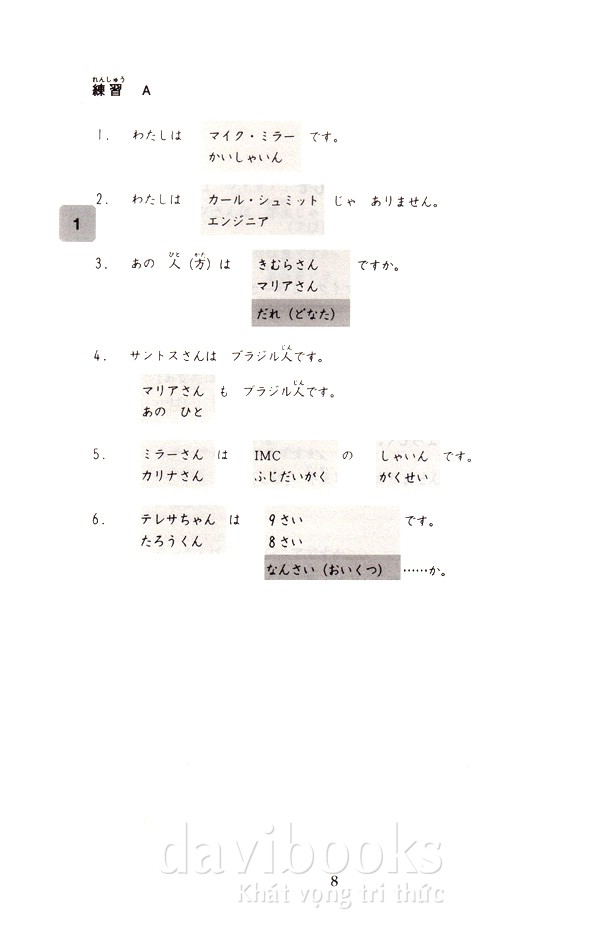 れんしゅう
練習 A
1. わたしは マイク・ミラー です。
かいしゃいん
2. わたしは カール・シュミット じゃ ありません。
エンジニア
1
ひと かた
3. あの 人（方）は きむらさん ですか。
マリアさん
だれ（どなた）
じん
4. サントスさんは ブラジル人です。
じん
マリアさん も ブラジル人です。
あの ひと
5. ミラーさん は IMC の しゃいん です。
カリナさん ふじだいがく がくせい
6. テレサちゃん は 9さい です。
たろうくん 8さい
なんさい（おいくつ） ……か。
davibooks
8
Khát vọng tri thức